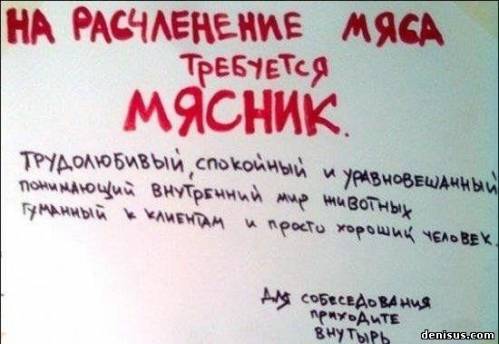 НА РАСЧЛЕНЕНИЕ МЯСА
ТРЕБУЕТСЯ
МЯСНИК.
ТРУДОЛЮБИВЫЙ, СПОКОЙНЫЙ И УРАВНОВЕШАННЫЙ
ПОНИМАЮЩИЙ ВНУТРЕННИЙ МИР ЖИВОТНЫХ
ГУМАННЫЙ К КЛИЕНТАМ И ПРОСТО ХОРОШИЙ ЧЕЛОВЕК.
ДЛЯ СОБЕСЕДОВАНИЯ
ПРИХОДИТЕ
ВНУТЫРЬ
denisus.com